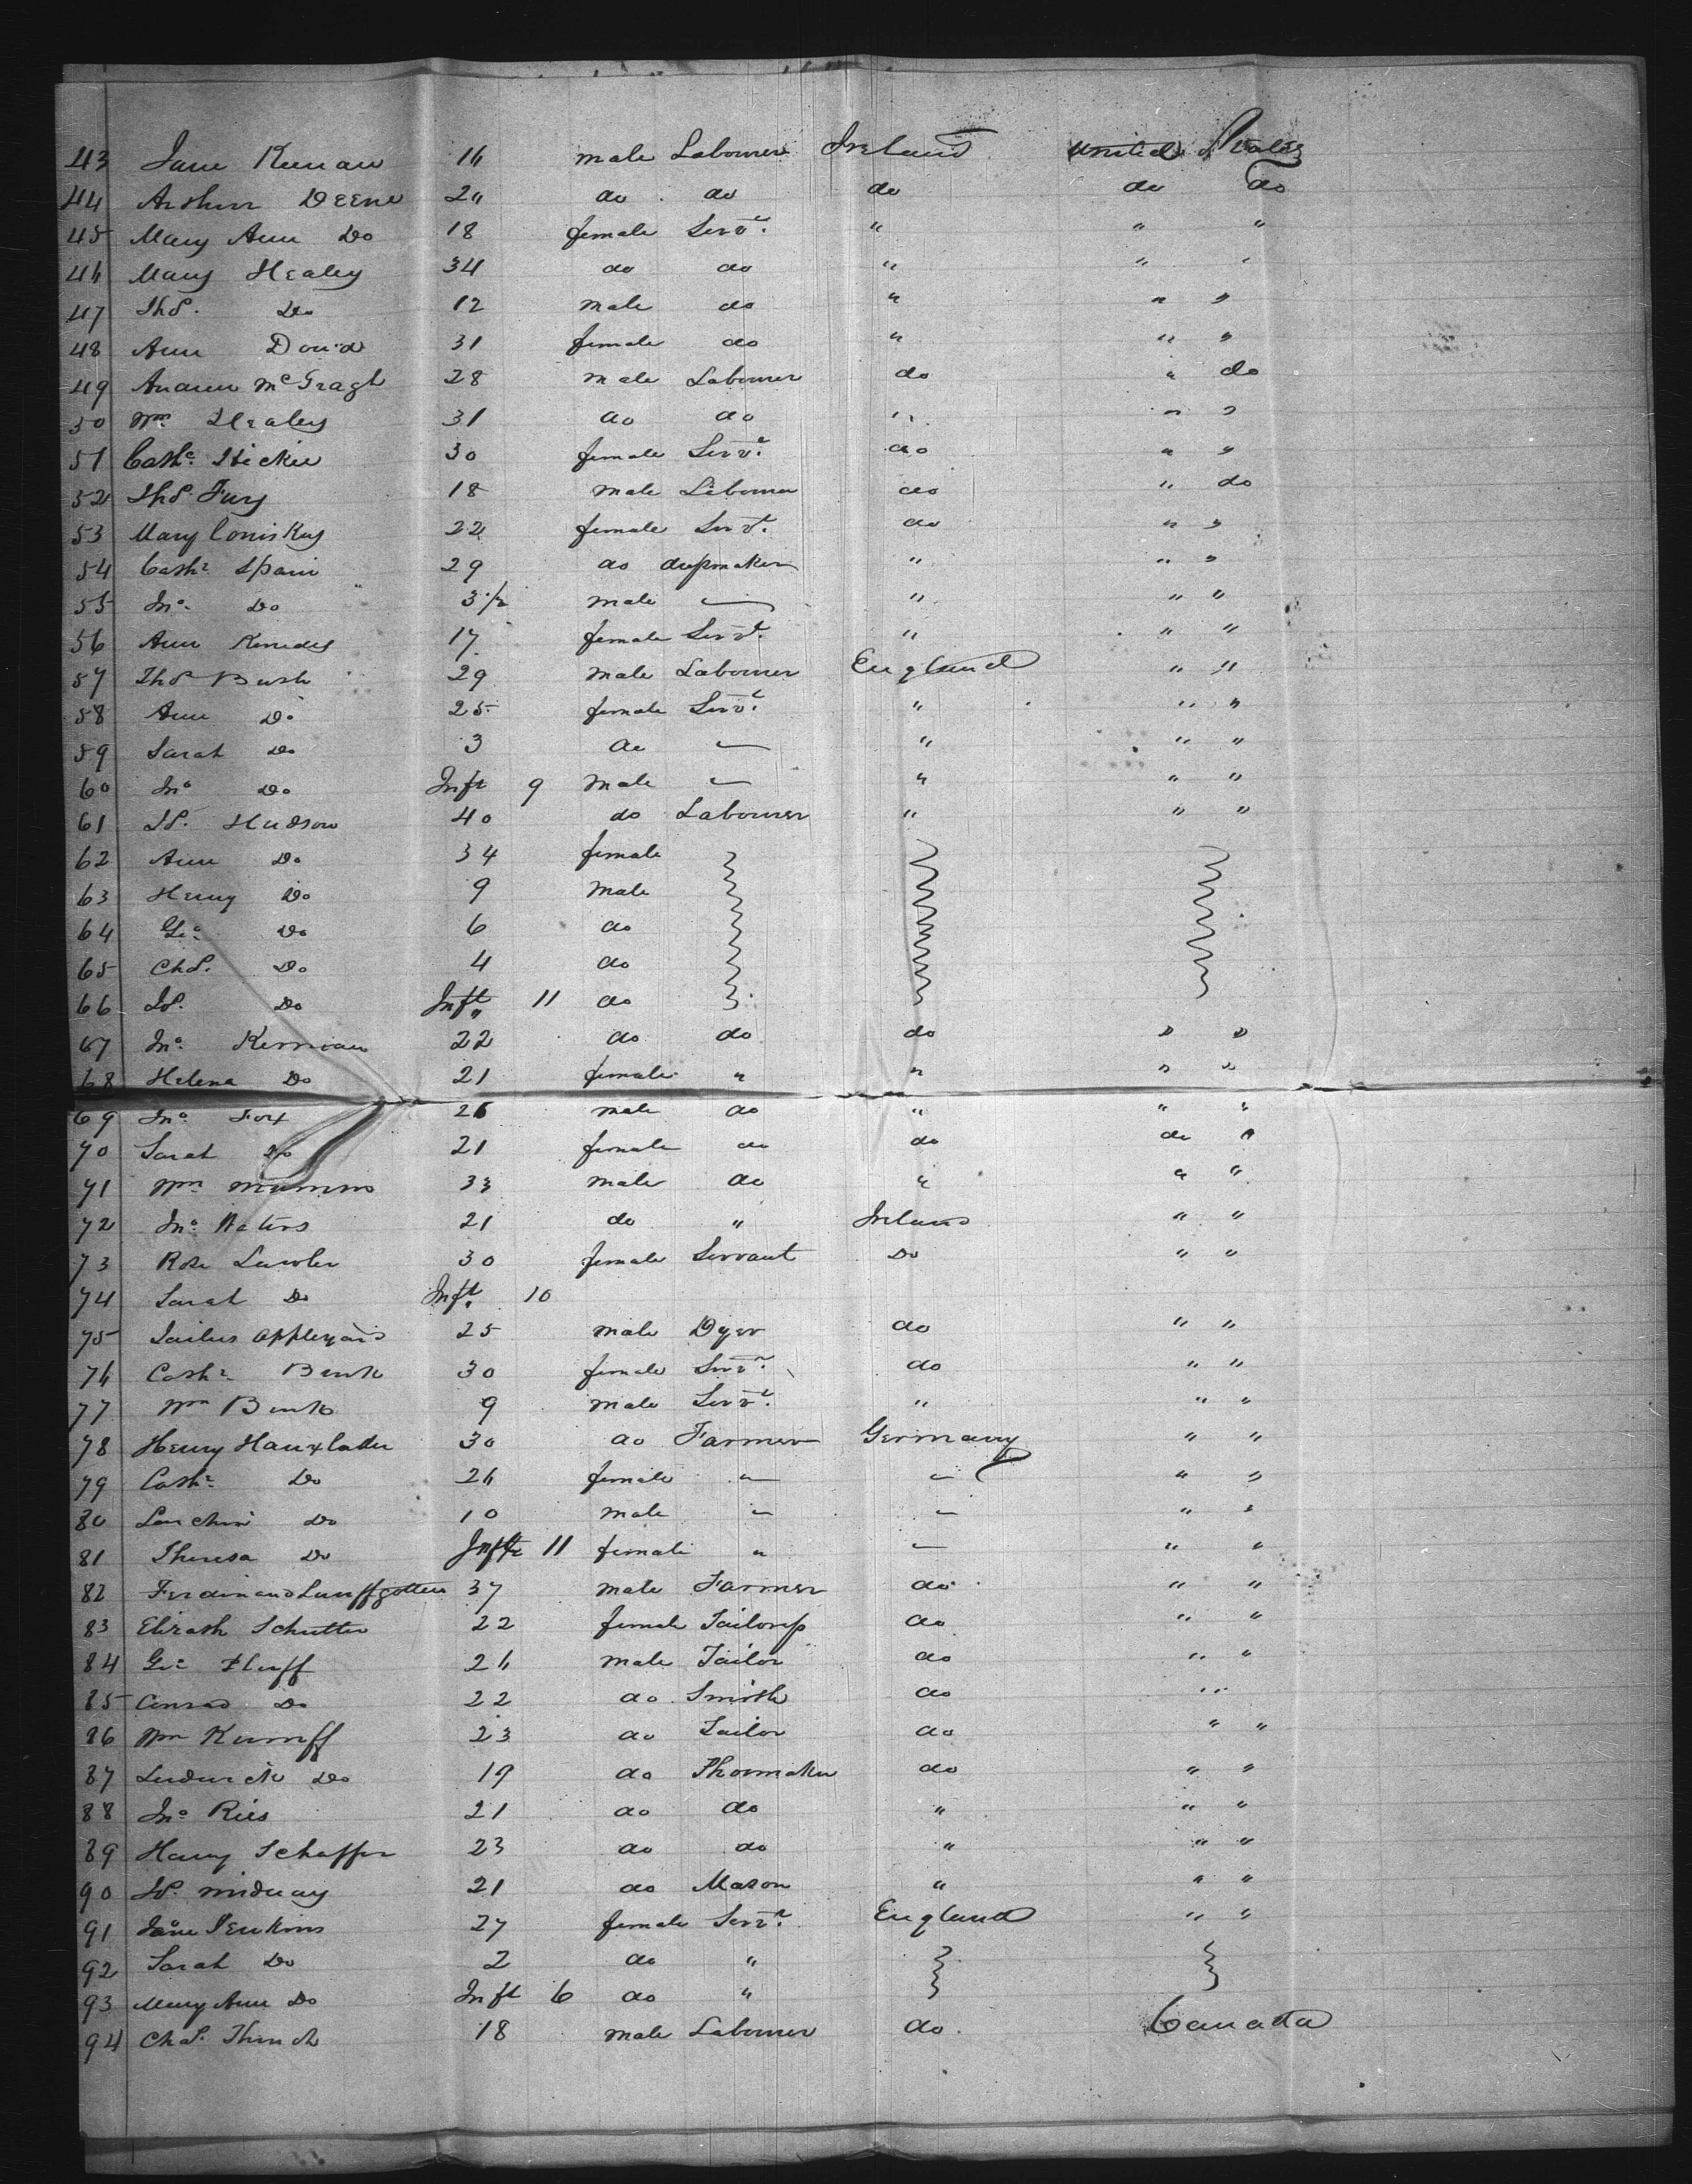 43 Jane Keenan 16 male Labourer Ireland United States
44 Arthur Deene 24 do do do do do
45 Mary Ann Do 18 female Servt. " " "
46 Mary Healey 34 do do " " "
47 Thos. Do 12 male do " " "
48 Ann 31 female do " " "
49 McGragh 28 male Labourer do " do
50 Wm Healey 31 do do " " "
51 Cathe. Hickie 30 female Servt. do " "
52 Thos. Fury 18 male Labourer do " do
53 Mary Comiskey 22 female Servt. do " "
54 Cathe. Spain 29 do " " "
55 Jno. Do 3 1/2 male — " " "
56 Ann Kenedey 17 female Servt. " " "
57 Thos Bush 29 male Labourer England " "
58 Ann Do 25 female Servt. " " "
59 Sarah Do 3 do — " " "
60 Jno Do Inft 9 male — " " "
61 Js. Hudson 40 do Labourer " " "
62 Ann Do 34 female
63 Henry Do 9 male
64 Geo. Do 6 do
65 Chs. Do 4 do
66 Js. Do Inft 11 do
67 Jno. Kerrivan 22 do do do " "
68 Helena Do 21 female " " " "
69 Jno. Fox 26 male do " " "
70 Sarah Do 21 female do do do "
71 Wm 33 male do " " "
72 Jno. Waters 21 do " Ireland " "
73 Rose Lawler 30 female Servant Do " "
74 Sarah Do Inft. 10
75 Appleyard 25 male Dyer do " "
76 Cathe. 30 female Servt. do " "
77 Wm 9 male Servt. " " "
78 Henry 30 do Farmer Germany " "
79 Cathe. Do 26 female — — " "
80 Do 10 male — — " "
81 Theresa Do Inft 11 female " — " "
82 Ferdinand 37 male Farmer do " "
83 Elizath Schutter 22 female Tailoress do " "
84 Geo 26 male Tailor do " "
85 Conrad Do 22 do Smith do " "
86 Wm Kumff 23 do Tailor do " "
87 Ludwick Do 19 do Shoemaker do " "
88 Jno. Ries 21 do do " " "
89 Henry Schaffer 23 do do " " "
90 Js. Midway 21 do Mason " " "
91 Jane Jenkins 27 female Servt. England " "
92 Sarah Do 2 do "
93 Mary Ann Do Inft 6 do "
94 Chas. 18 male Labourer do. Canada